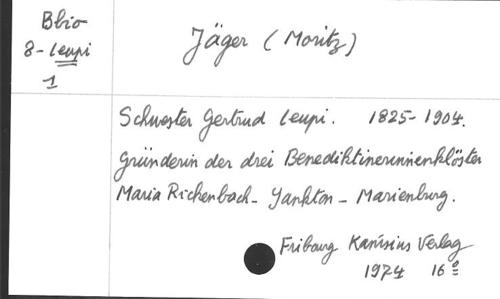 Bbio
8-leupi
1
Jäger (Moritz)
Schwester Gertrud leupi. 1825-1904.
Gründerin der drei Benediktinerinnenklöster
Maria Rickenbach - Yankton - Marienburg.
Fribourg Kanisius Verlag
1974 16°